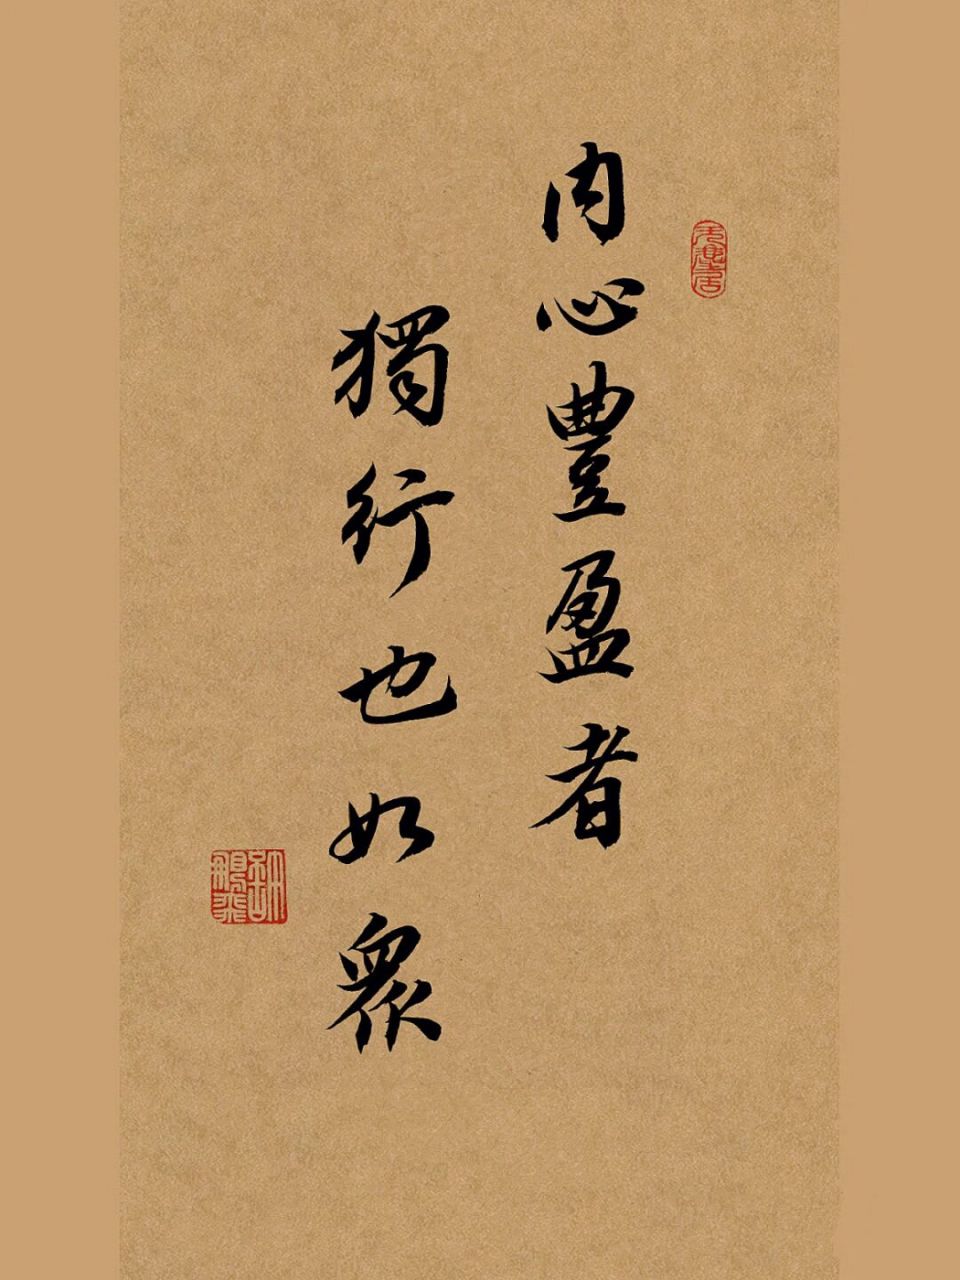 內心豐盈者
獨行也如眾